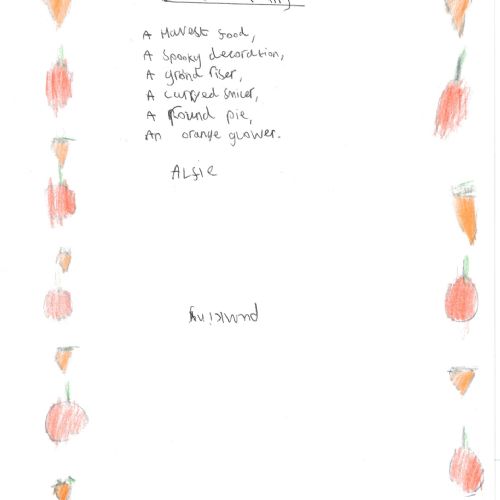 A Harvest food,
A spooky decoration,
A grond riser,
A curved smiler,
A round pie,
An orange glower.
Alfie
pumking